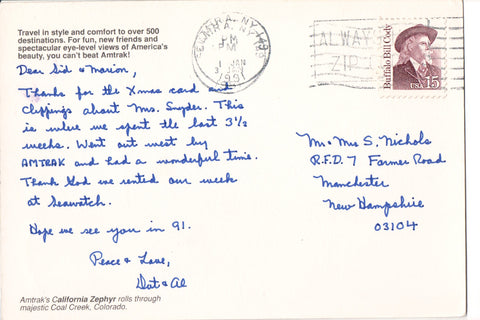 Travel in style and comfort to over 500
destinations. For fun, new friends and
spectacular eye-level views of America's
beauty, you can't beat Amtrak!
Dear Sid & Marion,
Thanks for the Xmas card and
clippings about Mrs. Snyder. This
is where we spent the last 3½
weeks. Went out west by
AMTRAK and had a wonderful time.
Thank God we rented our week
at Seawatch.
Hope we see you in 91.
Peace & Love,
Dot & Al
Amtrak's California Zephyr rolls through
majestic Coal Creek, Colorado.
ELMIRA, NY
PM
JAN
1991
ALWAYS
ZIP
Buffalo Bill Cody
USA 15
Mr & Mrs S. Nichols
R.F.D. 7 Farmer Road
Manchester
New Hampshire
03104